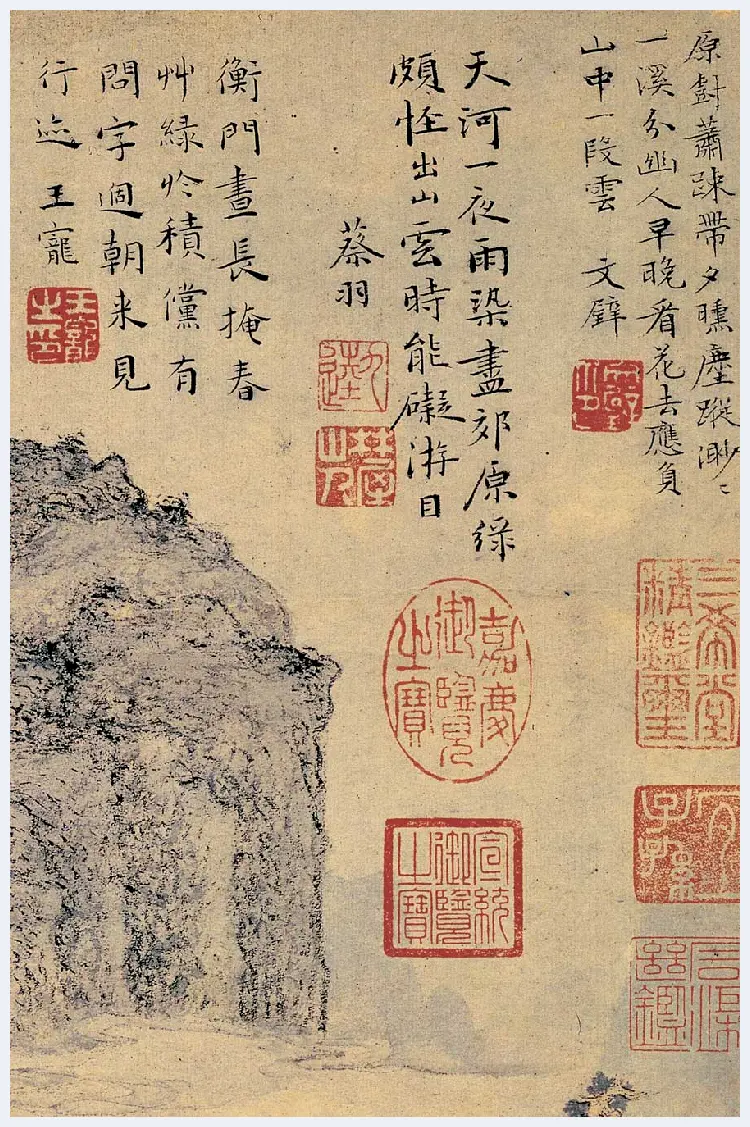 原尌蕭踈帶夕曛塵蹤渺〻
一溪分幽人早晚看花去應負
山中一段雲 文璧
天河一夜雨染盡郊原綠
頗怪出山雲時能礙游目
蔡羽
衡門晝長掩春
艸緑於積儻有
問字過朝来見
行迹 王寵
三希堂
精鑑璽
宜
子孫
嘉慶
御覽
之寶
宣統
御覽
之寶
石渠
寶鑑